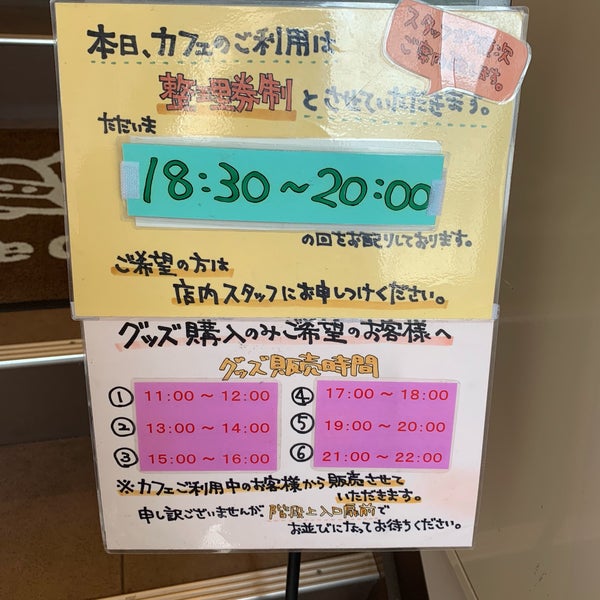 本日、カフェのご利用は
整理券制とさせていただきます。
スタッフが順次
ご案内します。
ただいま
18:30〜20:00
の回をお配りしております。
ご希望の方は
店内スタッフにお申しつけください。
グッズ購入のみご希望のお客様へ
グッズ販売時間
① 11:00 〜 12:00
② 13:00 〜 14:00
③ 15:00 〜 16:00
④ 17:00 〜 18:00
⑤ 19:00 〜 20:00
⑥ 21:00 〜 22:00
※カフェご利用中のお客様から販売させて
いただきます。
申し訳ございませんが、階段上入口扉前で
お並びになってお待ちください。